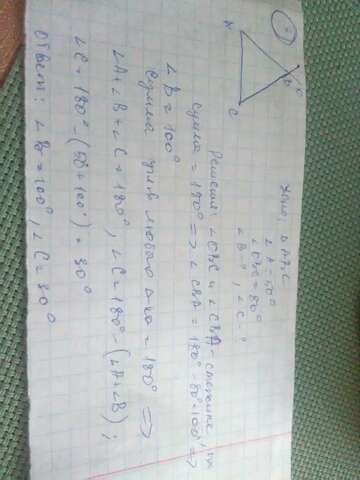 ②
A
B
D
C
Дано: △ABC
∠A = 50°
∠DBC = 80°
∠B - ?, ∠C - ?
Решение: ∠DBC и ∠CBA - смежные, их
сумма = 180° => ∠CBA = 180° - 80° = 100° =>
∠B = 100°
Сумма углов любого △-ка = 180° =>
∠A + ∠B + ∠C = 180°, ∠C = 180° - (∠A + ∠B);
∠C = 180° - (50° + 100°) = 30°
Ответ: ∠B = 100°, ∠C = 30°